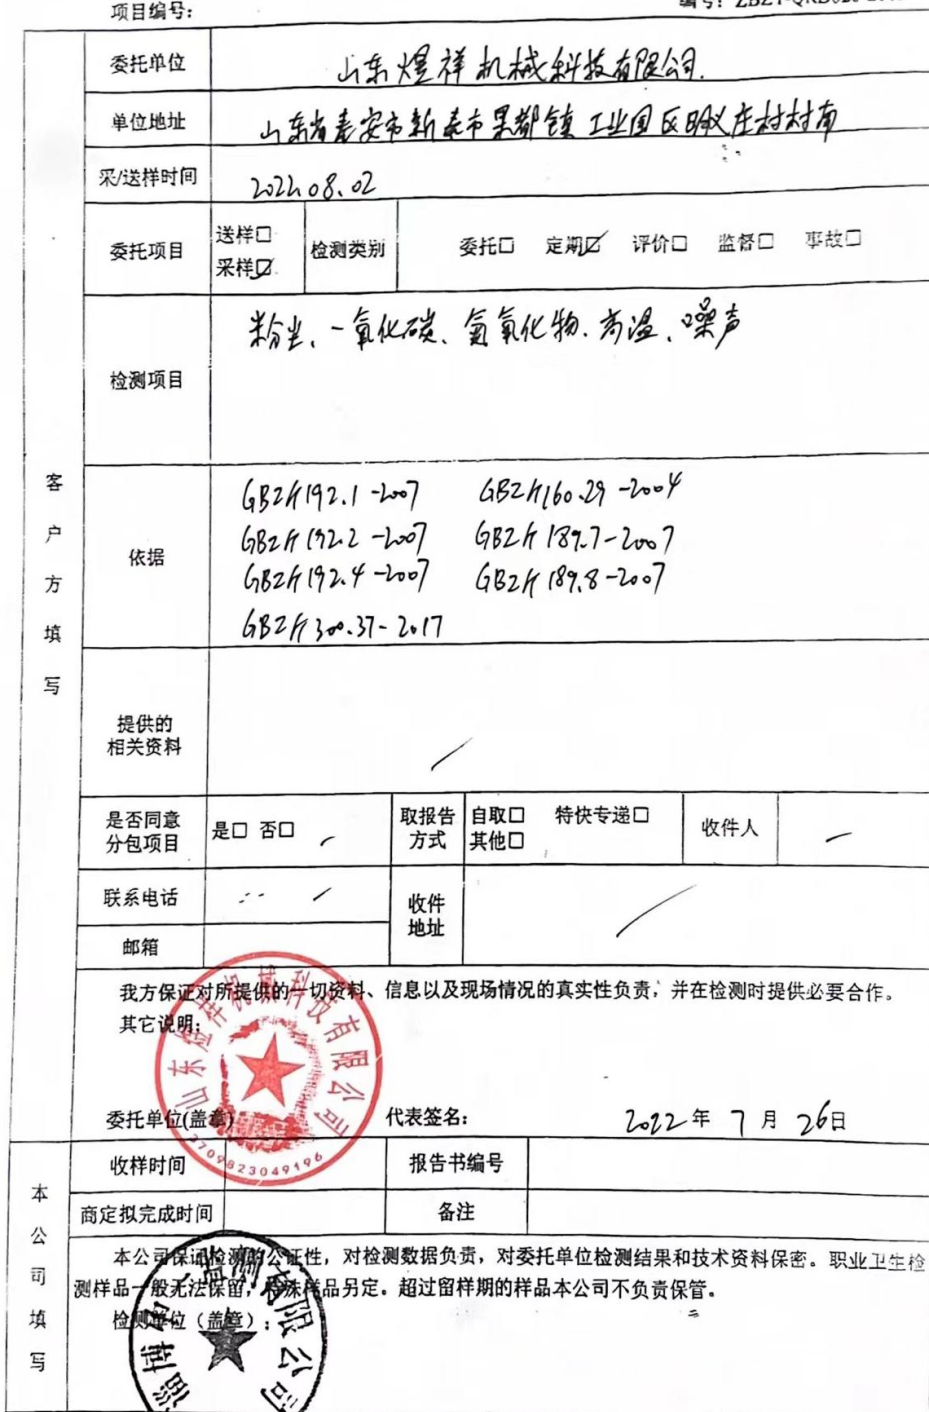 项目编号：
编号：ZBZY-QR
委托单位 山东煜祥机械科技有限公司.
单位地址 山东省泰安市新泰市果都镇工业园区明义庄村村南
采/送样时间 2022.08.02
委托项目 送样☐ 检测类别 委托☐ 定期☑ 评价☐ 监督☐ 事故☐
采样☑
检测项目 粉尘、一氧化碳、氮氧化物、高温、噪声
客户方填写
依据
GBZ/T192.1-2007 GBZ/T160.29-2004
GBZ/T192.2-2007 GBZ/T189.7-2007
GBZ/T192.4-2007 GBZ/T189.8-2007
GBZ/T300.37-2017
提供的
相关资料 /
是否同意
分包项目 是☐ 否☐ /
取报告
方式
自取☐ 特快专递☐
其他☐
收件人 /
联系电话 /
收件
地址 /
邮箱
我方保证对所提供的一切资料、信息以及现场情况的真实性负责，并在检测时提供必要合作。
其它说明：
山东煜祥机械科技有限公司
3709823049196
委托单位(盖章) 代表签名： 2022年7月26日
本公司填写
收样时间 报告书编号
商定拟完成时间 备注
本公司保证检测的公证性，对检测数据负责，对委托单位检测结果和技术资料保密。职业卫生检
测样品一般无法保留，特殊样品另定。超过留样期的样品本公司不负责保管。
检测单位（盖章）：
淄博 检测有限公司